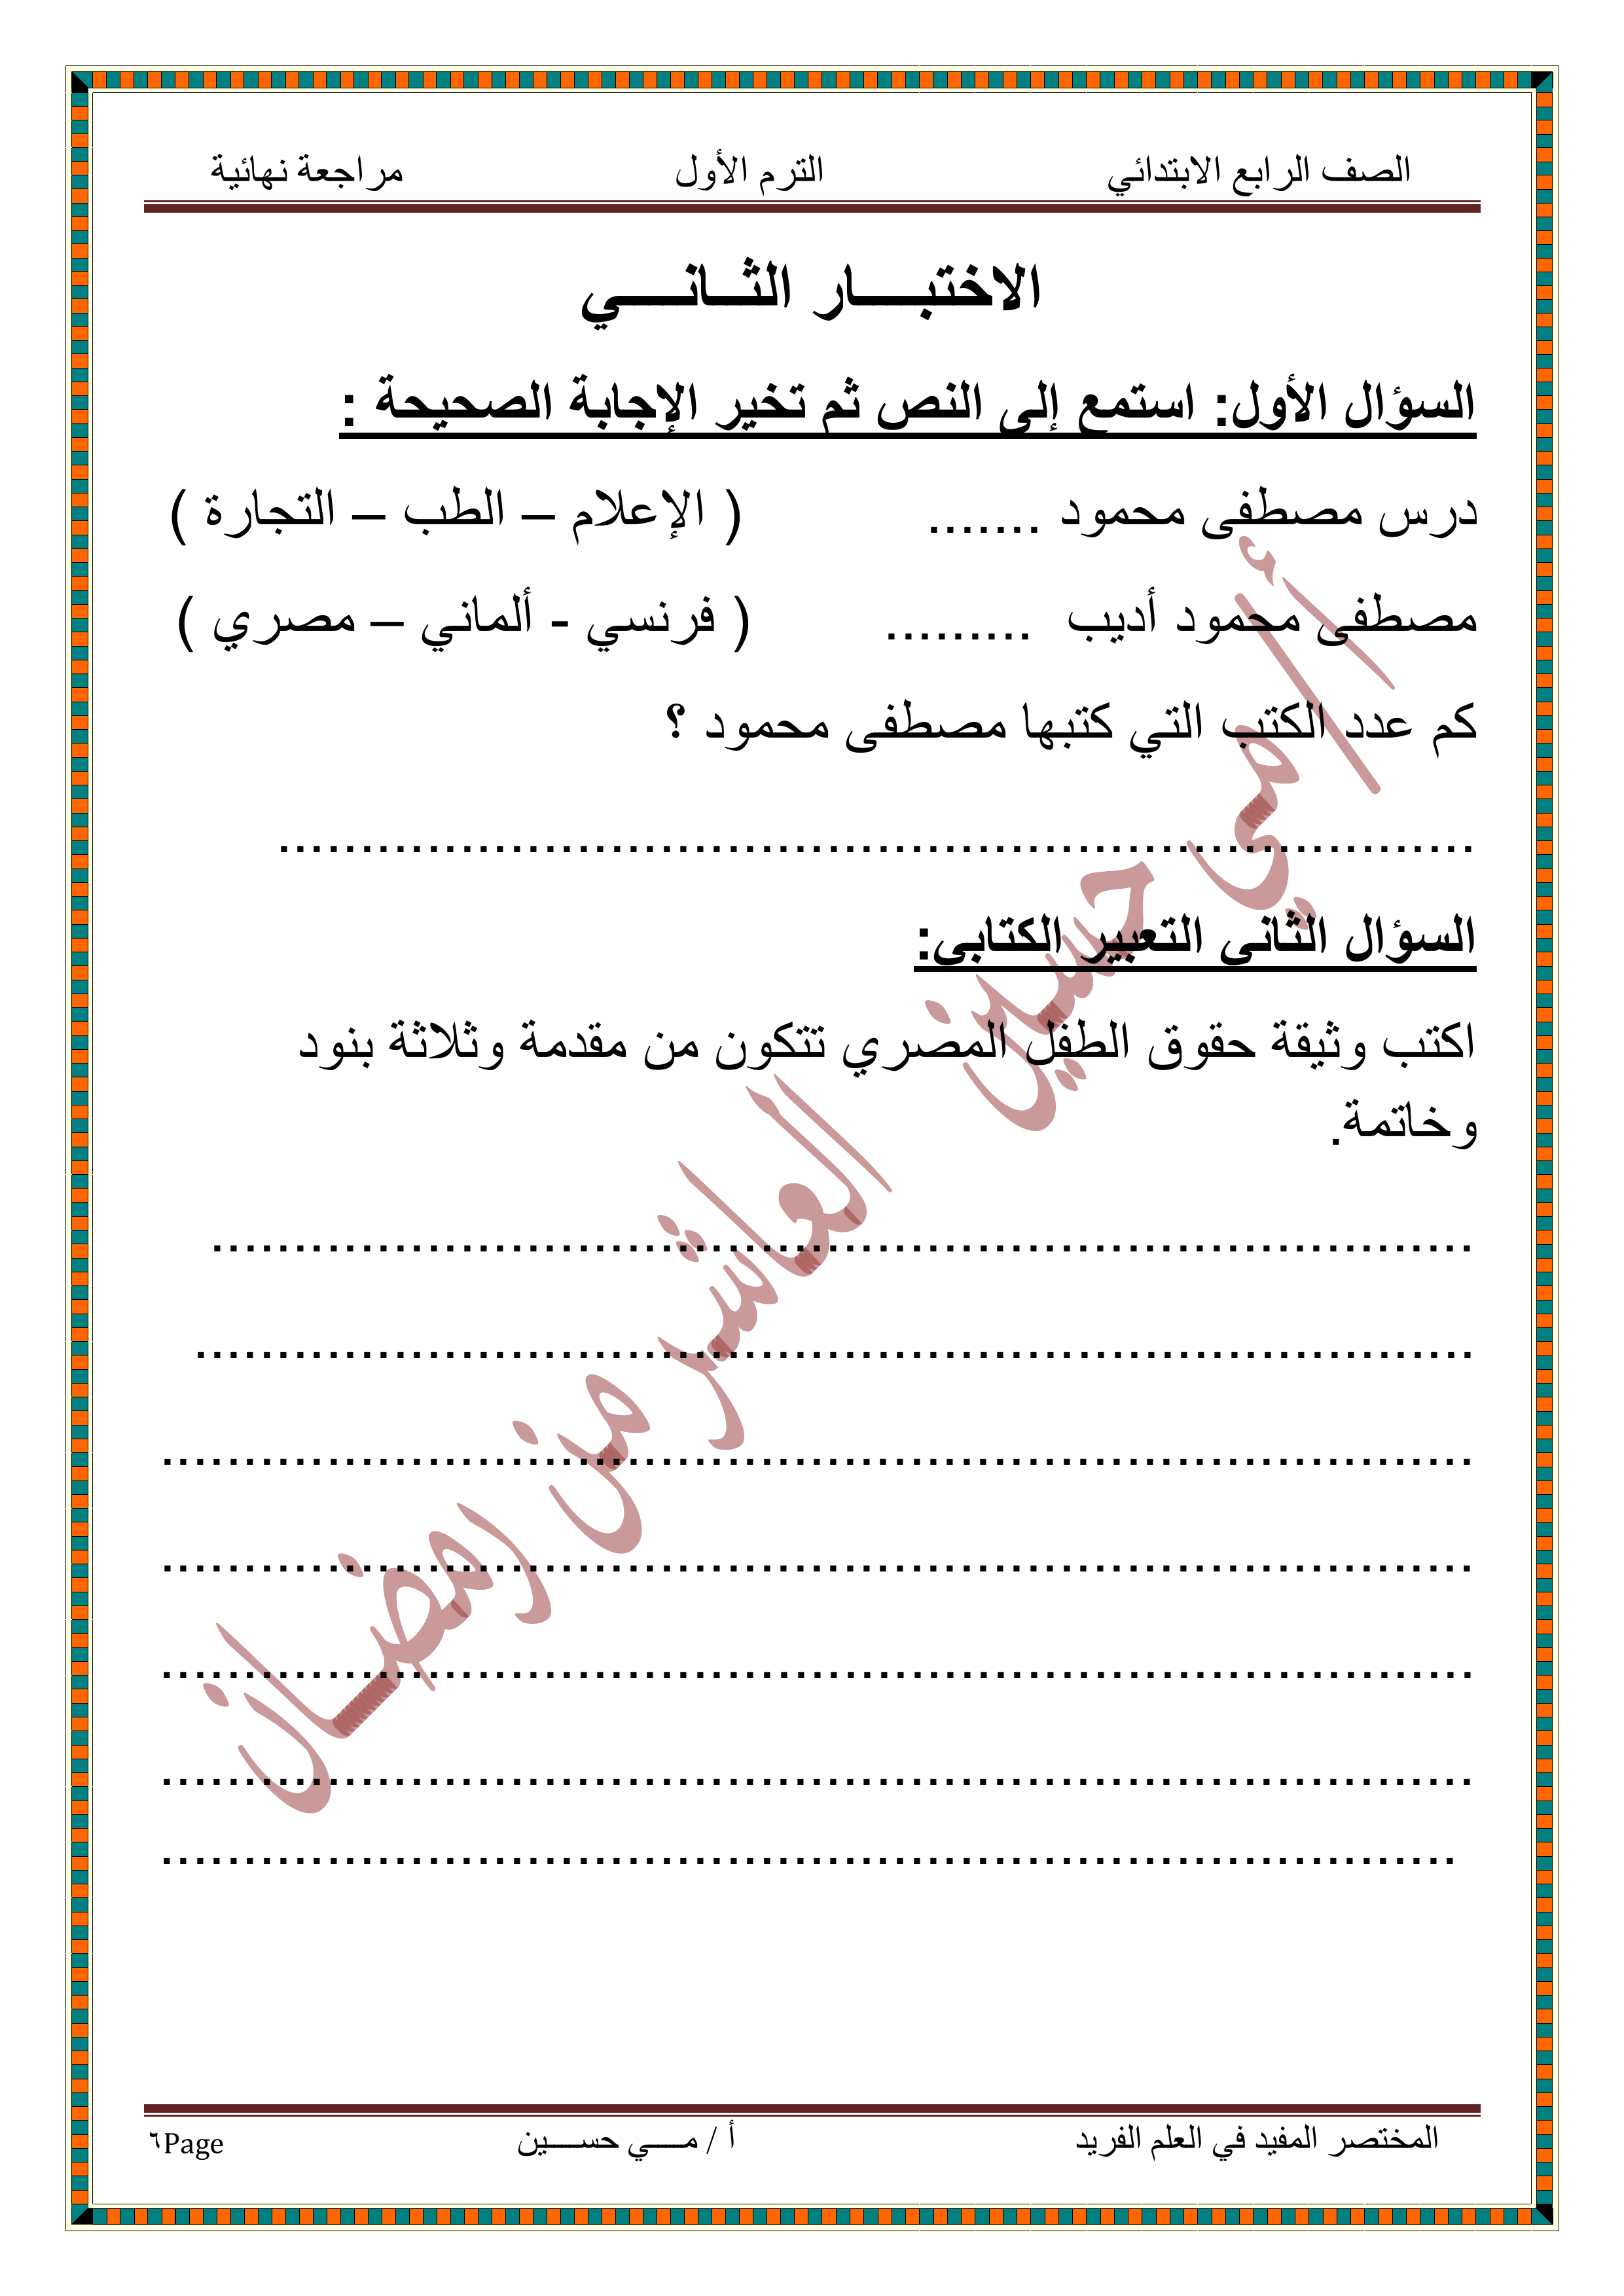 الصف الرابع الابتدائي الترم الأول مراجعة نهائية
الاختبـــــار الثـــانـــــي
السؤال الأول: استمع إلى النص ثم تخير الإجابة الصحيحة :
درس مصطفى محمود ....... ( الإعلام – الطب – التجارة )
مصطفى محمود أديب ......... ( فرنسي - ألماني – مصري )
كم عدد الكتب التي كتبها مصطفى محمود ؟
.........................................................................
السؤال الثاني التعبير الكتابي:
اكتب وثيقة حقوق الطفل المصري تتكون من مقدمة وثلاثة بنود
وخاتمة.
.............................................................................
..............................................................................
................................................................................
................................................................................
................................................................................
................................................................................
...............................................................................
أ/مي حسين العاشر من رمضان
المختصر المفيد في العلم الفريد أ / مـــــي حســـــين ٦Page